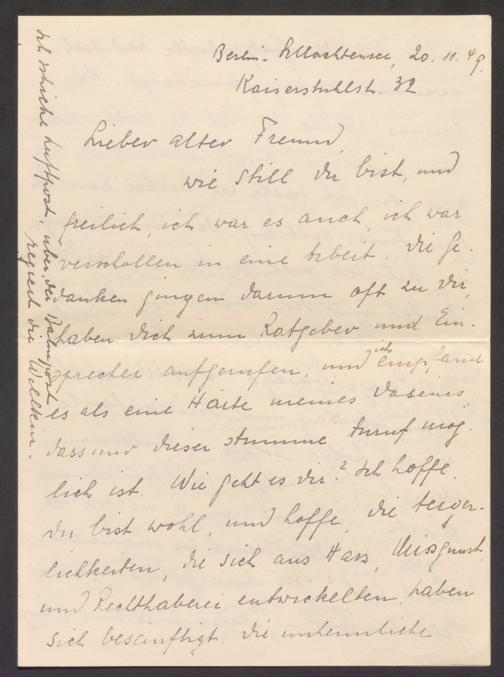 Berlin-Schlachtensee, 20.11.49.
Kaiserstuhlstr. 32
Lieber alter Freund,
wie still du bist, und
freilich, ich war es auch, ich war
verschollen in eine Arbeit. Die Ge-
danken gingen darum oft zu dir,
haben dich zum Ratgeber und Ein-
sprecher aufgerufen, und ich empfand
es als eine Härte meines Daseins,
dass nur dieser stumme Anruf mög-
lich ist. Wie geht es dir? Ich hoffe,
du bist wohl, und hoffe, die Aerger-
lichkeiten, die sich aus Hass, Missgunst
und Rechthaberei entwickelten, haben
sich besänftigt. Die unheimliche
Ich schicke Luftpost, über der
regiert die Willkür.